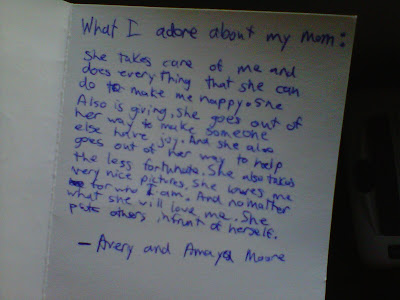 What I adore about my mom:
She takes care of me and
does everything that she can
do to make me happy. She
Also is giving, she goes out of
her way to make someone
else have joy. And she also
goes out of her way to help
the less fortunate. She also takes
very nice pictures. She loves me
for who I am. And no matter
what she will love me. She
puts others infront of herself.
— Avery and Amaya Moore